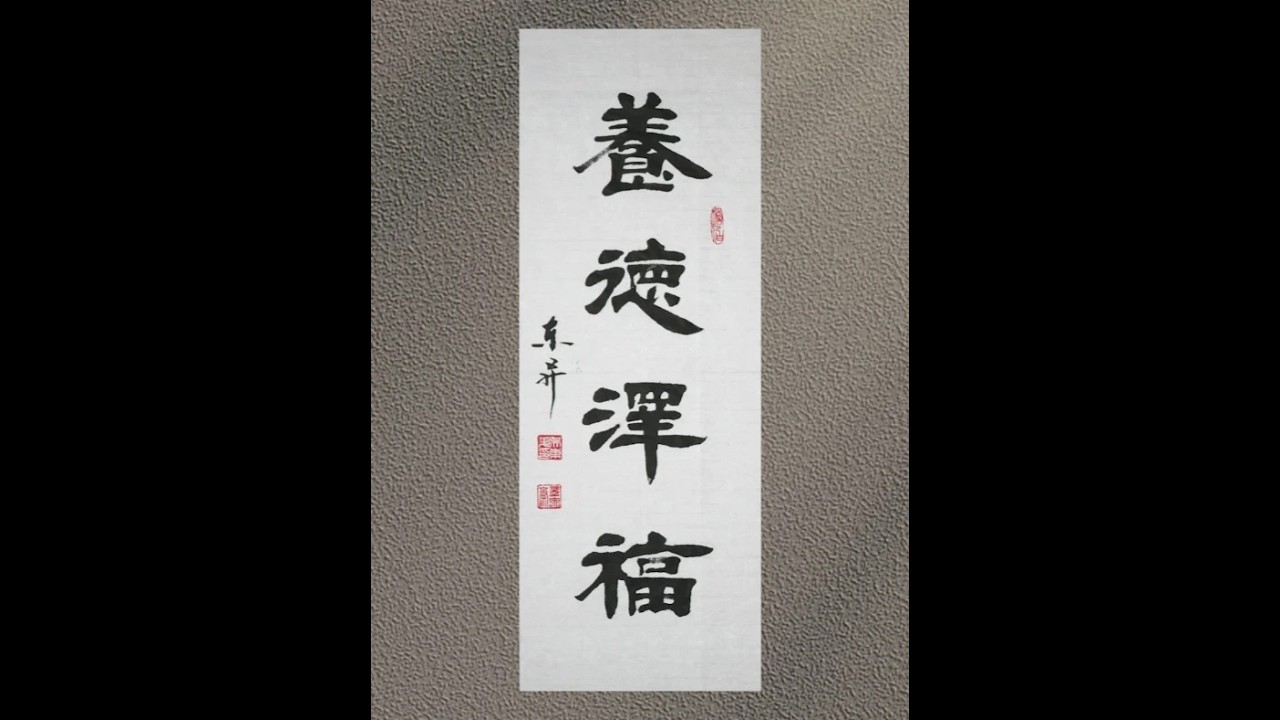 養德澤福
东昇